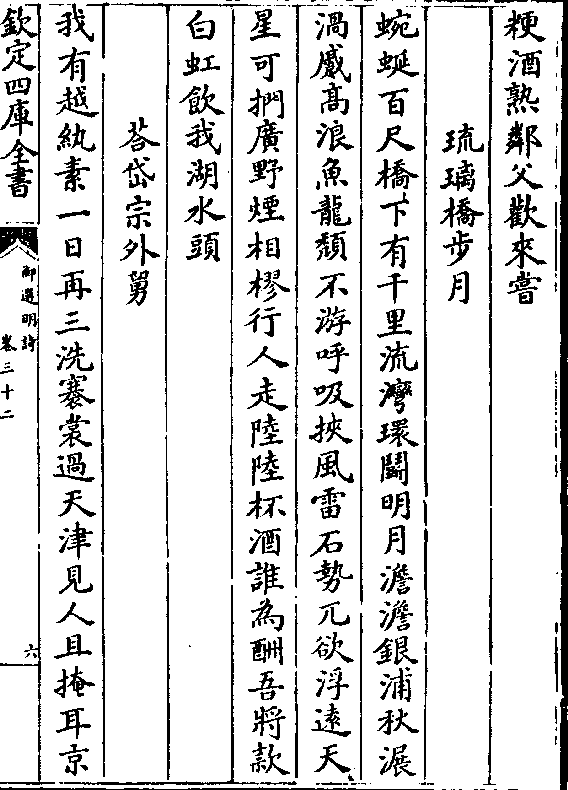 粳酒熟鄰父歡來嘗
琉璃橋步月
蜿蜒百尺橋下有千里流灣環鬬明月澹澹銀浦秋漲
渦蹙髙浪魚龍頽不游呼吸挾風雷石勢兀欲浮逺天
星可捫廣野煙相樛行人走陸陸杯酒誰為酬吾將款
白虹飲我湖水頭
荅岱宗外舅
我有越紈素一日再三洗褰裳過天津見人且掩耳京
欽定四庫全書
御選明詩
卷三十二
六